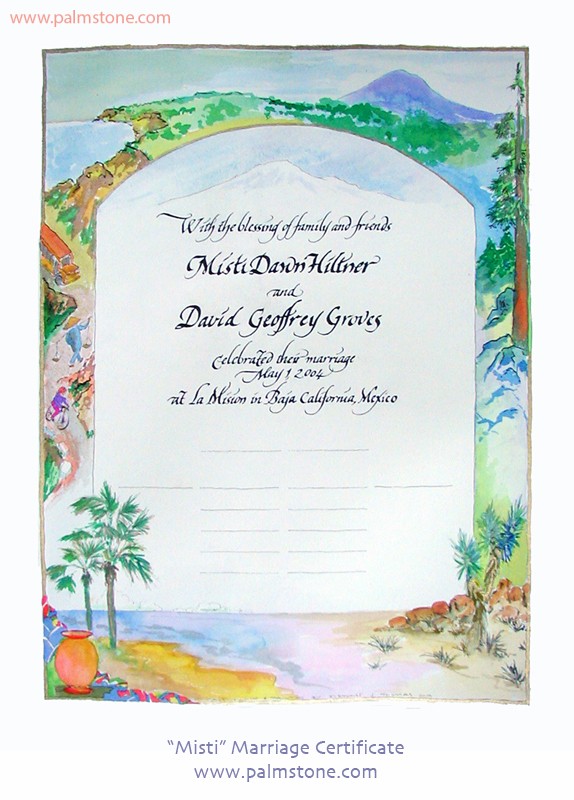 www.palmstone.com
With the blessing of family and friends
Misti Dawn Hiltner
and
David Geoffrey Groves
Celebrated their marriage
May 1 2004
at La Mision in Baja California, Mexico
"Misti" Marriage Certificate
www.palmstone.com